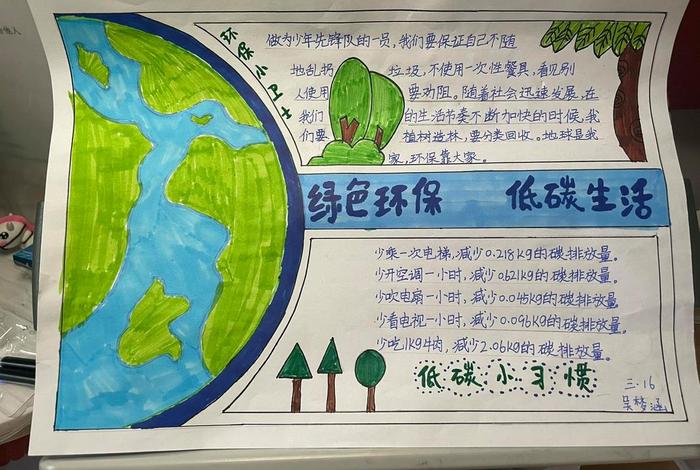 环保小卫士
做为少年先锋队的一员,我们要保证自己不随
地乱扔垃圾,不使用一次性餐具,看见别
人使用要劝阻。随着社会迅速发展,在
我们的生活节奏不断加快的时候,我
们要植树造林,要分类回收。地球是我
家,环保靠大家。
绿色环保 低碳生活
少乘一次电梯,减少0.218kg的碳排放量。
少开空调一小时,减少0.621kg的碳排放量。
少吹电扇一小时,减少0.045kg的碳排放量
少看电视一小时,减少0.096kg的碳排放量。
少吃1kg牛肉,减少2.06kg的碳排放量。
低碳小习惯
三.16
吴梦涵